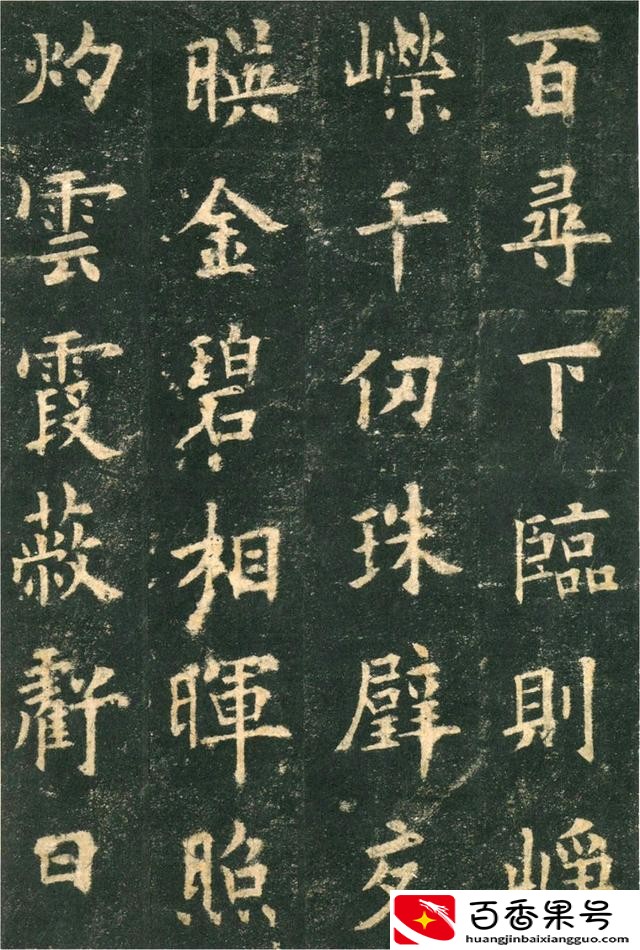 百尋下臨則崢
嶸千仞珠璧交
暎金碧相暉照
灼雲霞蔽虧日
百香果号
huangjinbaixiangguo.com